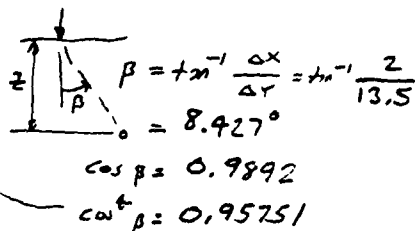 β = tan⁻¹ ΔX/ΔY = tan⁻¹ 2/13.5
z
β
= 8.427°
cos β = 0.9892
cos⁴ β = 0.95751